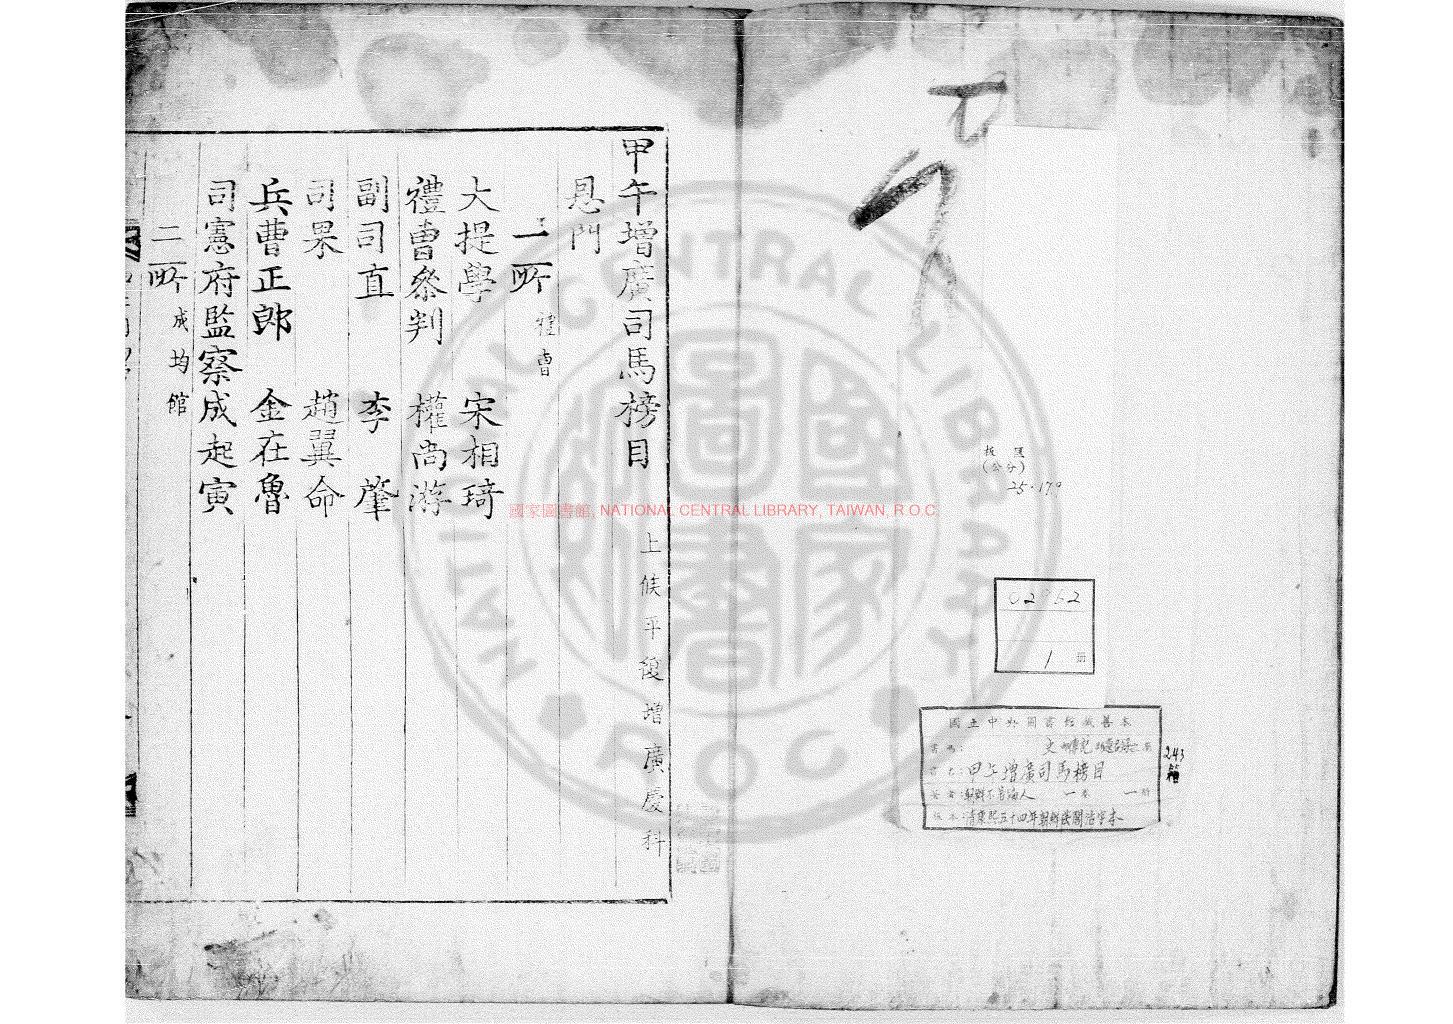 甲午增廣司馬榜目 上候平復增廣慶科
恩門
一所 禮曹
大提學 宋相琦
禮曹參判 權尚游
副司直 李肇
司果 趙翼命
兵曹正郎 金在魯
司憲府監察成起寅
二所 成均館
國家圖書館, NATIONAL CENTRAL LIBRARY, TAIWAN, R.O.C
NATIONAL CENTRAL LIBRARY
R O C
國家圖書
板匡
(公分)
1 冊
國立中央圖書館藏善本
甲午增廣司馬榜目
一卷 一冊
清康熙五十四年朝鮮校閣活字本
243
箱